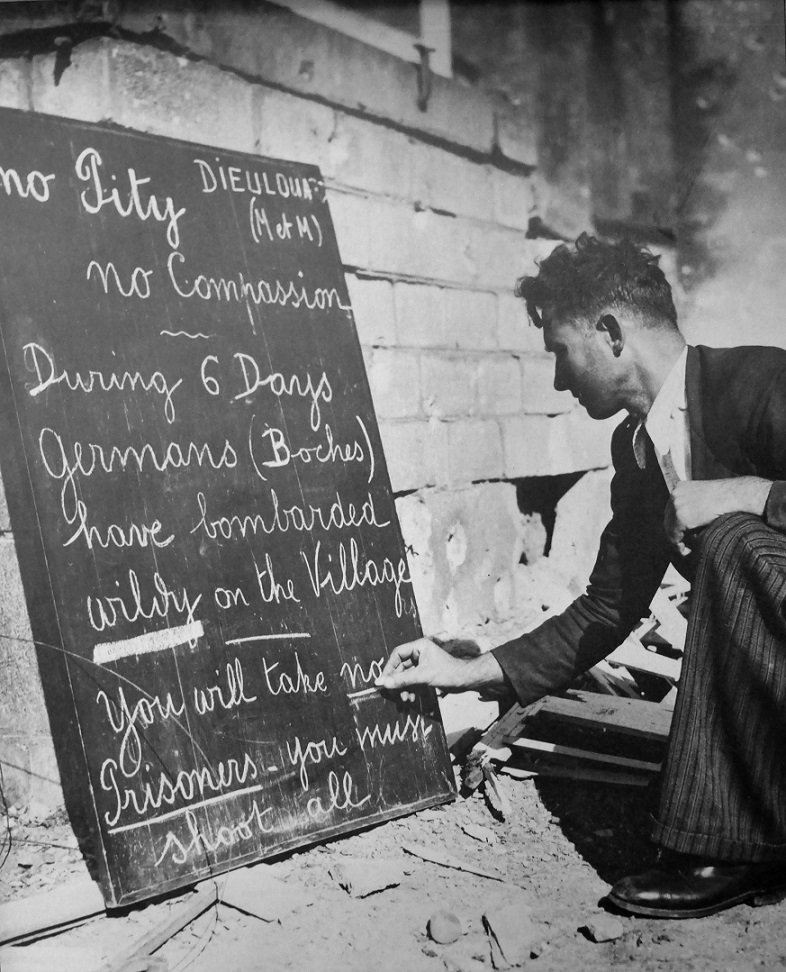 no Pity DIEULOUARD
(M et M)
no Compassion
During 6 Days
Germans (Boches)
have bombarded
wildy on the Village
You will take no
Prisoners - you must
shoot all